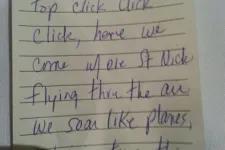 Top click click
click, here we
come w/ ole St Nick
flying thru the air
we soar like planes,